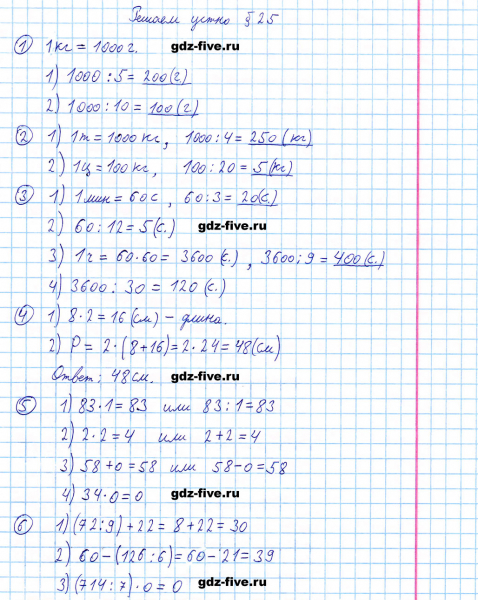 Решаем устно § 25
① 1кг = 1000г. gdz-five.ru
1) 1000 : 5 = 200(г)
2) 1000 : 10 = 100(г)
② 1) 1т = 1000 кг, 1000 : 4 = 250 (кг)
2) 1ц = 100 кг, 100 : 20 = 5 (кг)
③ 1) 1 мин = 60 с, 60 : 3 = 20(с.)
2) 60 : 12 = 5(с.) gdz-five.ru
3) 1ч = 60·60 = 3600 (с.), 3600 : 9 = 400(с.)
4) 3600 : 30 = 120 (с.)
④ 1) 8·2 = 16 (см) – длина.
2) P = 2·(8+16) = 2·24 = 48(см)
Ответ: 48см. gdz-five.ru
⑤ 1) 83·1 = 83 или 83 : 1 = 83
2) 2·2 = 4 или 2+2 = 4
3) 58+0 = 58 или 58–0 = 58
4) 34·0 = 0 gdz-five.ru
⑥ 1) (72:9) + 22 = 8 + 22 = 30
2) 60 – (126 : 6) = 60 – 21 = 39
3) (714 : 7)·0 = 0 gdz-five.ru